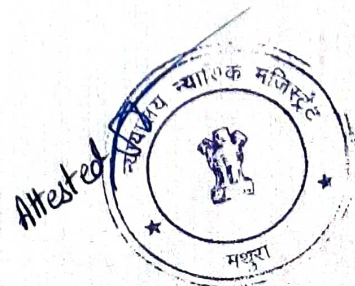 Attested
न्यायालय न्यायिक मजिस्ट्रेट
मथुरा